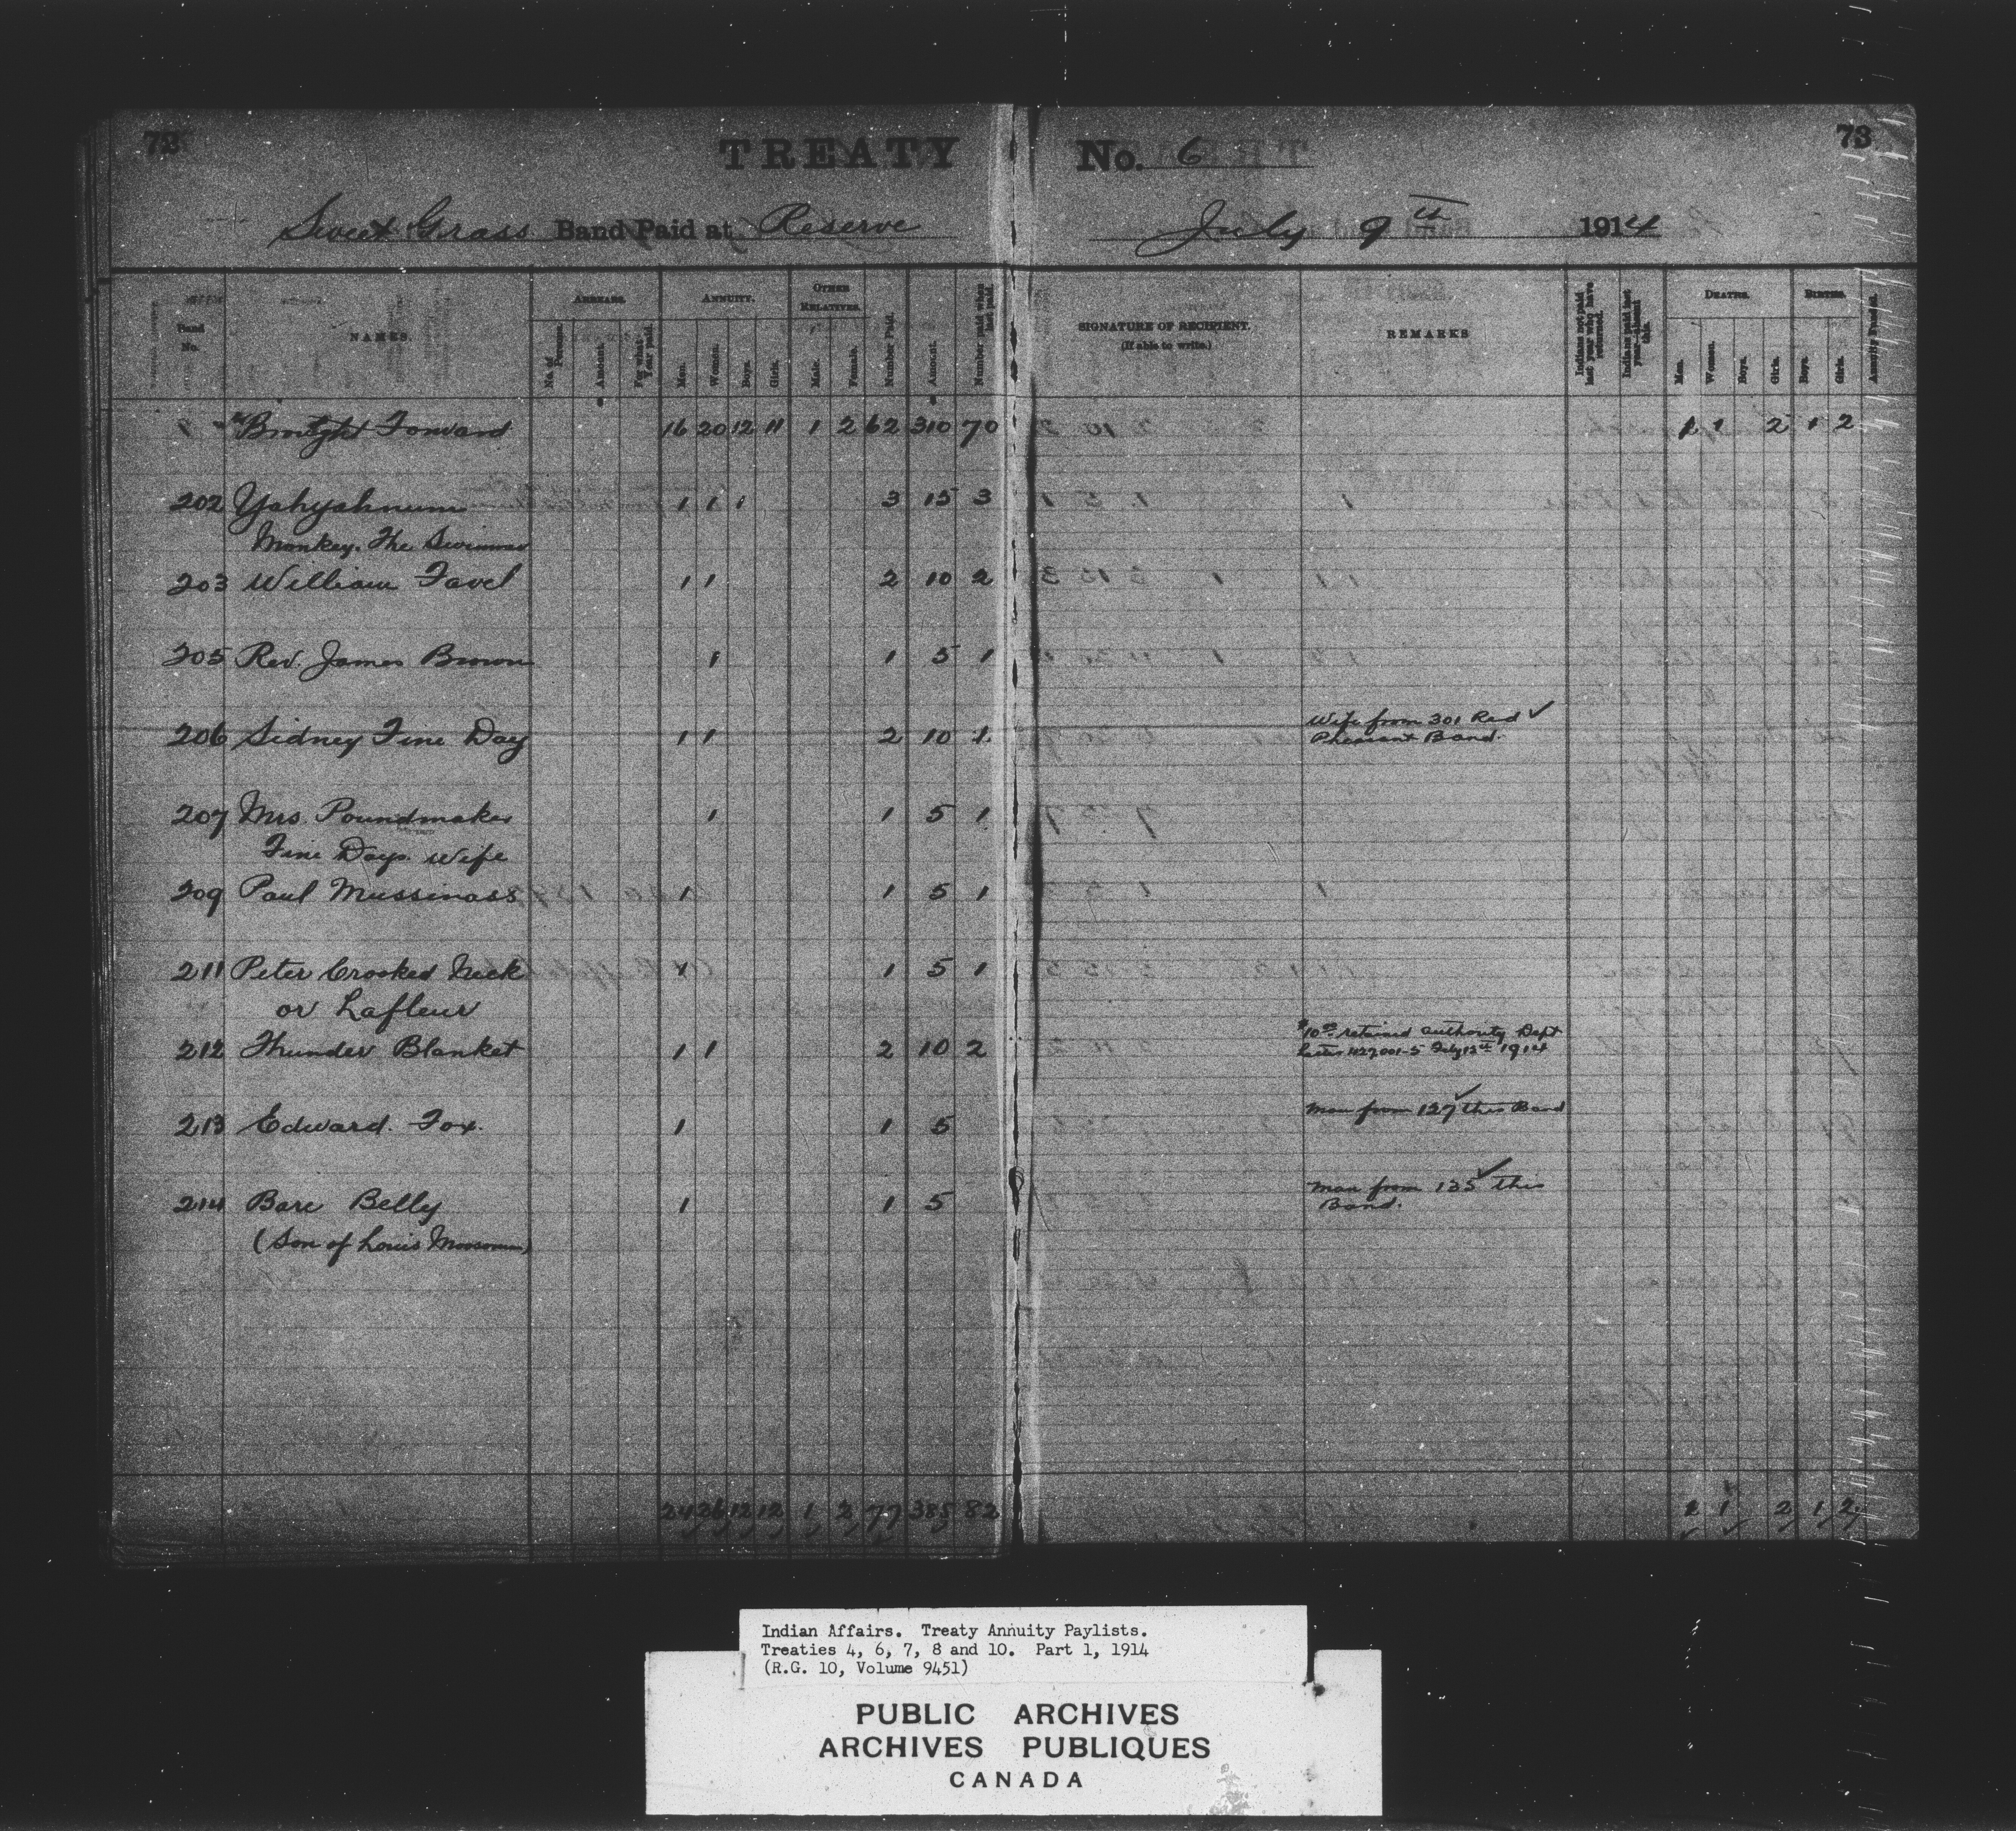 72
TREATY
No. 6
73
Sweet Grass Band Paid at Reserve
July 9th 1914
Band No.
NAMES.
ARREARS.
No. of Persons.
Amount.
For what Year paid.
ANNUITY.
Men.
Women.
Boys.
Girls.
OTHER RELATIVES.
Male.
Female.
Number Paid.
Amount.
Number paid when last paid.
SIGNATURE OF RECIPIENT.
(If able to write.)
REMARKS
Indians not paid last year who have returned.
Indians paid last year—absent this.
DEATHS.
Men.
Women.
Boys.
Girls.
BIRTHS.
Boys.
Girls.
Annuity Funded.
Brought Forward 16 20 12 11 1 2 62 310 70 1 1 2 1 2
202 Yahyahnum 1 1 1 3 15 3
Monkey. The Swimmer
203 William Favel 1 1 2 10 2
205 Rev. James Brown 1 1 5 1
206 Sidney Fine Day 1 1 2 10 1 Wife from 301 Red ✓
Pheasant Band.
207 Mrs. Poundmaker 1 1 5 1
Fine Days Wife
209 Paul Mussinass 1 1 5 1
211 Peter Crooked Neck 1 1 5 1
or Lafleur
212 Thunder Blanket 1 1 2 10 2 $10.00 retained authority Dept
Letter 427001-5 July 13th 1914
213 Edward. Fox. 1 1 5 Man from 127 ✓ this Band
214 Bare Belly 1 1 5 Man from 135 ✓ this
Band.
(Son of Louis Moosomin)
24 26 12 12 1 2 77 385 82 1 1 2 1 2
Indian Affairs. Treaty Annuity Paylists.
Treaties 4, 6, 7, 8 and 10. Part 1, 1914
(R.G. 10, Volume 9451)
PUBLIC ARCHIVES
ARCHIVES PUBLIQUES
CANADA